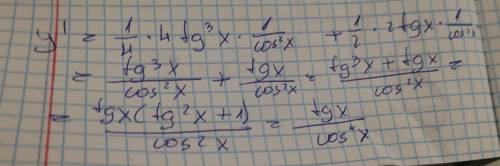 y' = 1/4 · 4 tg³x · 1/cos²x + 1/2 · 2 tgx · 1/cos²x
= tg³x/cos²x + tgx/cos²x = (tg³x + tgx)/cos²x =
= tgx(tg²x + 1)/cos²x = tgx/cos⁴x